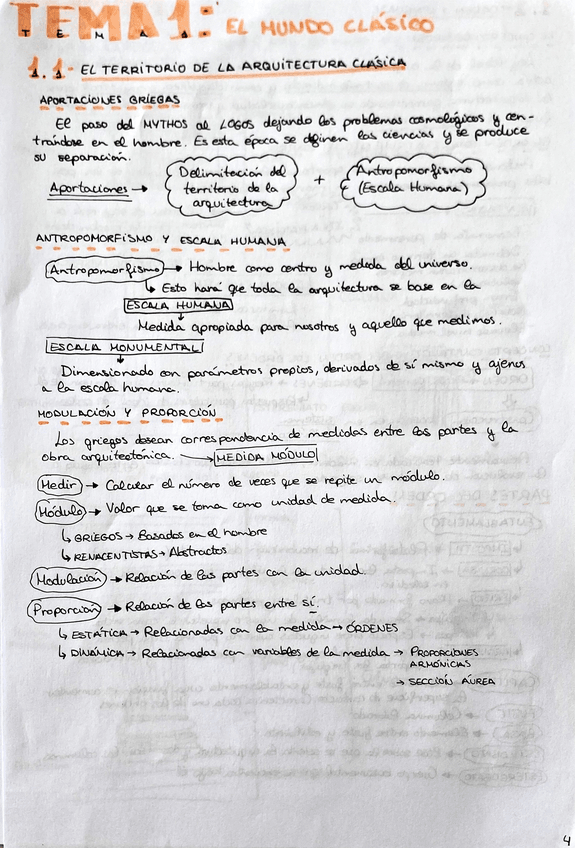 TEMA 1: EL MUNDO CLÁSICO
TEMA
1.1- EL TERRITORIO DE LA ARQUITECTURA CLÁSICA
APORTACIONES GRIEGAS
El paso del MYTHOS al LOGOS dejando los problemas cosmológicos y cen-
trándose en el hombre. Es esta época se definen las ciencias y se produce
su separación.
Aportaciones → Delimitación del territorio de la arquitectura + Antropomorfismo (Escala Humana)
ANTROPOMORFISMO Y ESCALA HUMANA
Antropomorfismo → Hombre como centro y medida del universo.
↳ Esto hará que toda la arquitectura se base en la
ESCALA HUMANA
Medida apropiada para nosotros y aquello que medimos.
ESCALA MONUMENTAL
Dimensionado con parámetros propios, derivados de sí mismo y ajenos
a la escala humana.
MODULACIÓN Y PROPORCIÓN
Los griegos desean correspondencia de medidas entre las partes y la
obra arquitectónica. → MEDIDA MÓDULO
Medir → Calcular el número de veces que se repite un módulo.
Módulo → Valor que se toma como unidad de medida.
↳ GRIEGOS → Basados en el hombre
↳ RENACENTISTAS → Abstractos
Modulación → Relación de las partes con la unidad.
Proporción → Relación de las partes entre sí.
↳ ESTÁTICA → Relacionadas con la medida → ÓRDENES
↳ DINÁMICA → Relacionadas con variables de la medida → PROPORCIONES
ARMÓNICAS
→ SECCIÓN AÚREA
4